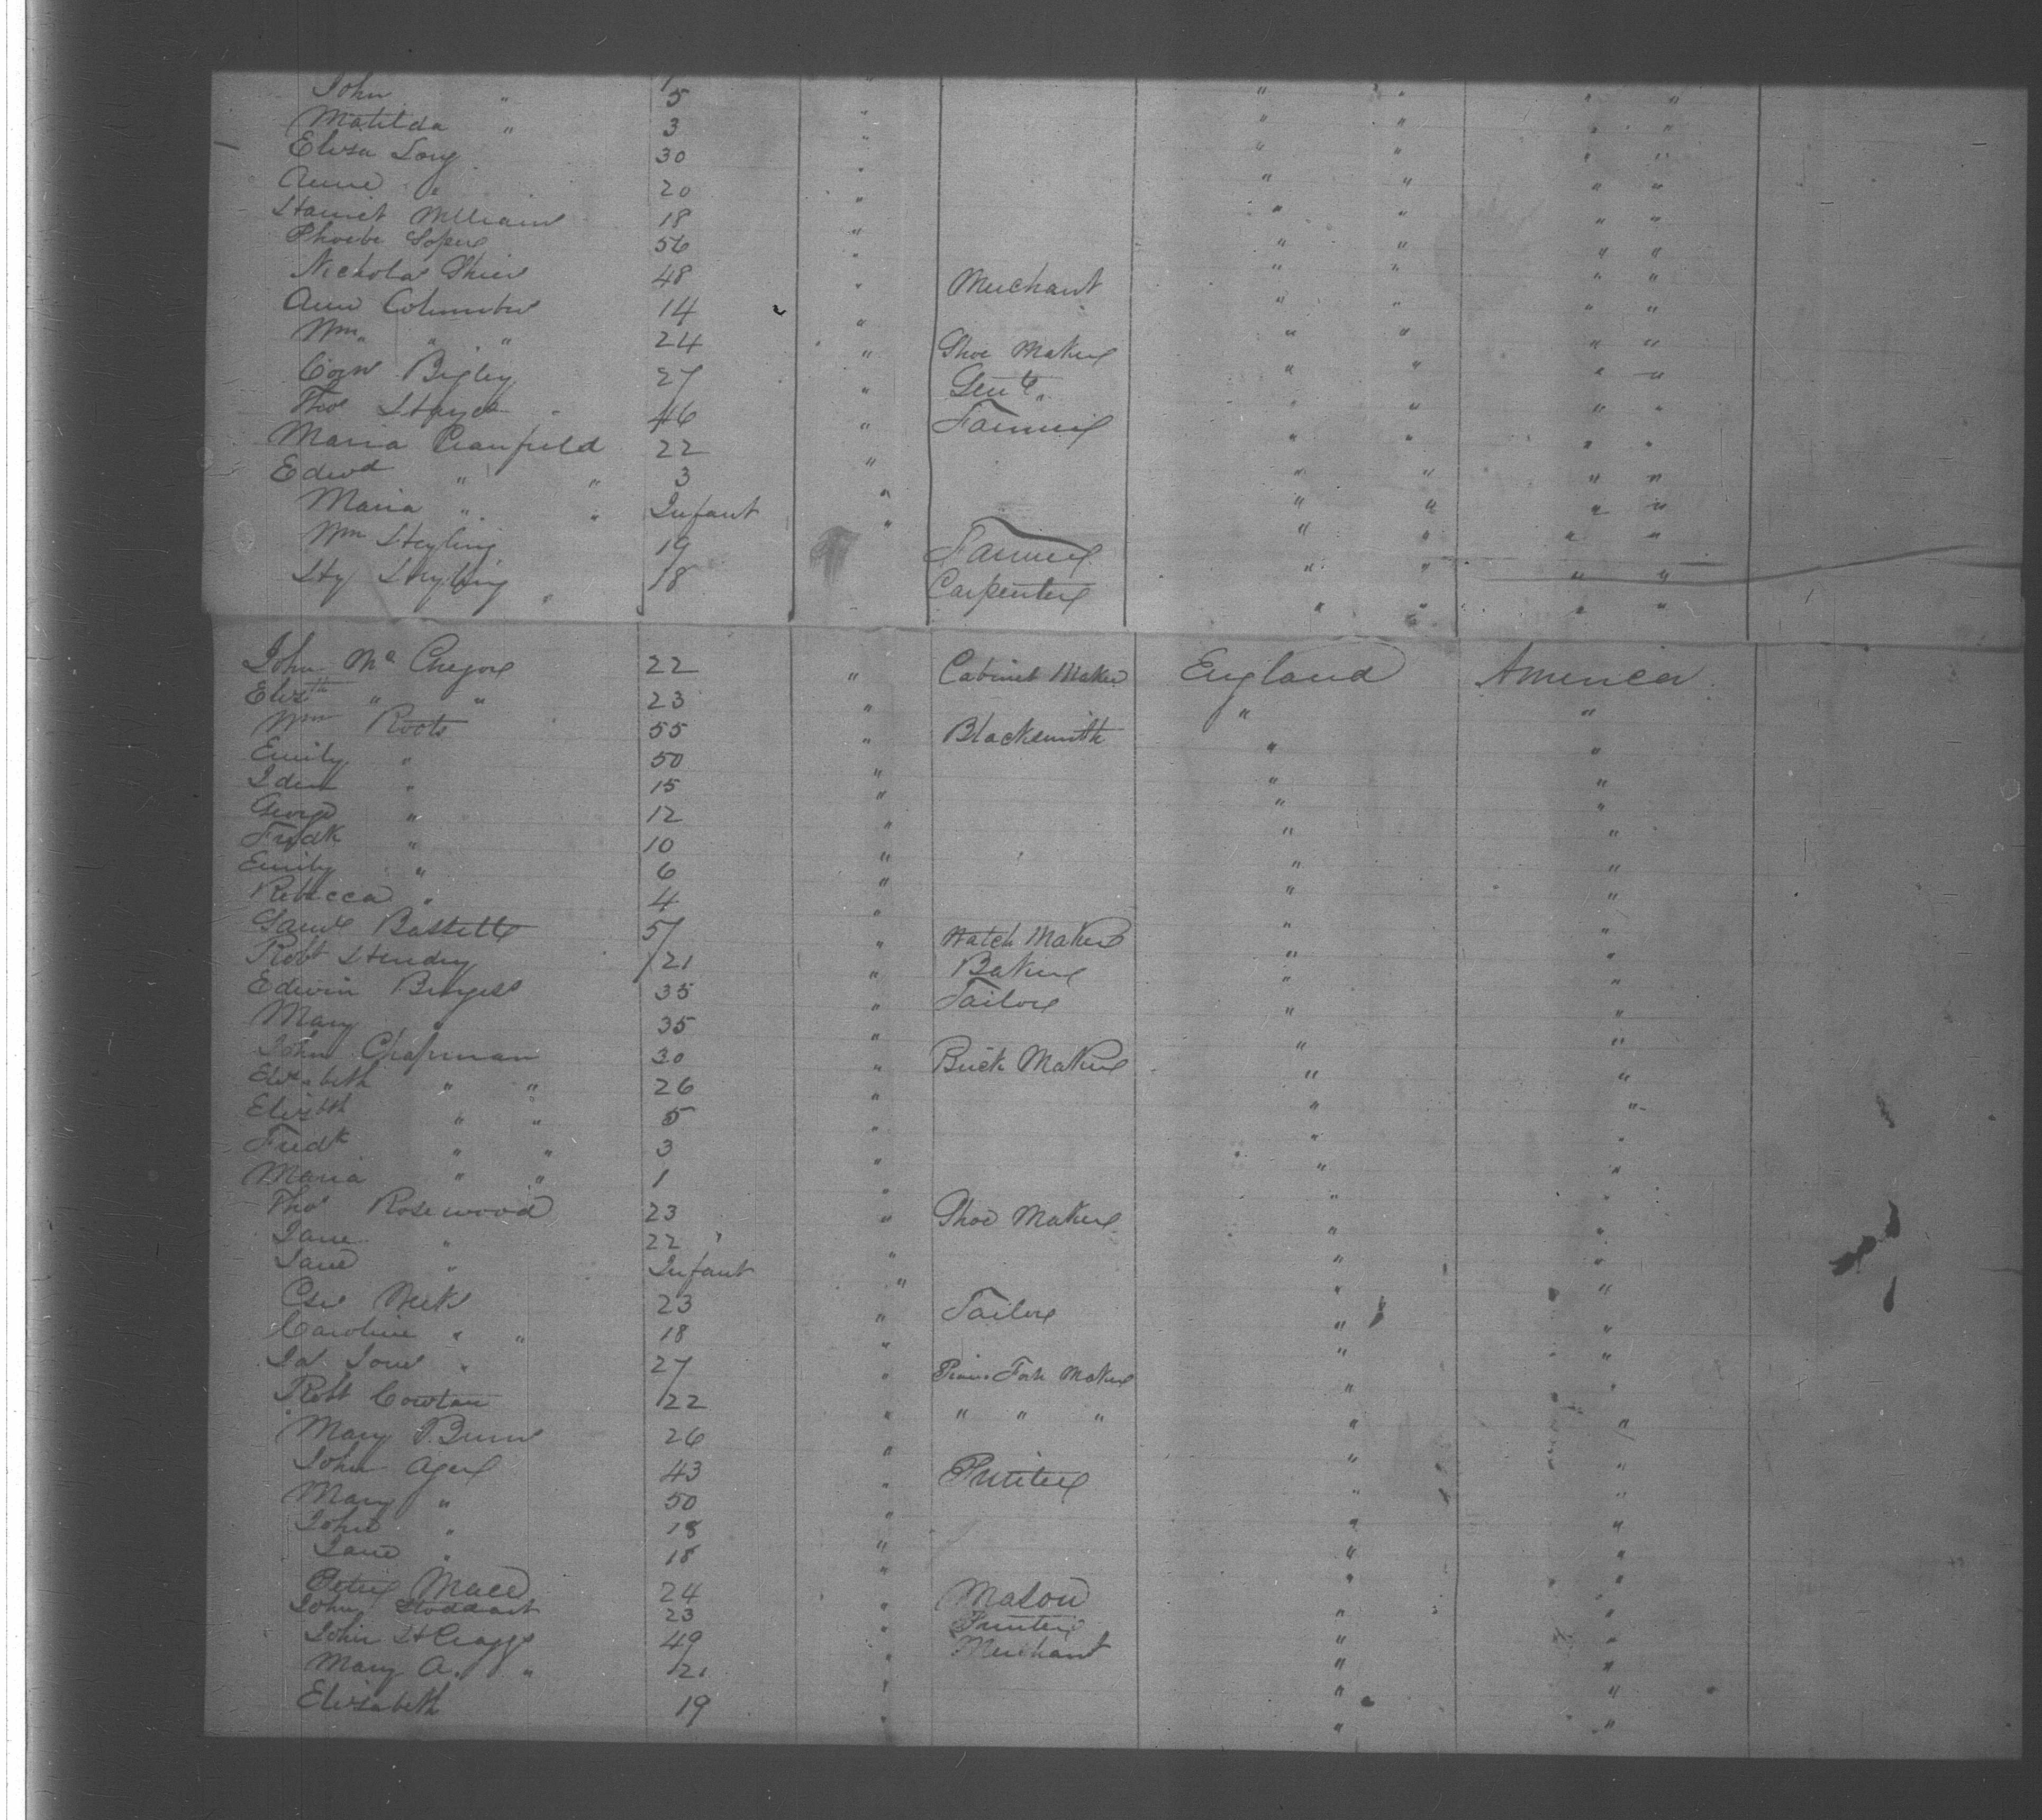 John " 5 " " " " "
Matilda " 3 " " " " "
Eliza Long 30 " " " " "
Anne " 20 " " " " "
Harriet William 18 " " " " "
Phoebe Soper 56 " " " " "
Nicholas 48 " Merchant " " " "
Ann Columbus 14 " " " " "
Wm " " 24 " Shoe Maker " " " "
Bigley 27 " Gent " " " "
Thos 46 " Farmer " " " "
Maria Cranfield 22 " " " " "
Edwd " " 3 " " " " "
Maria " " Infant " " " " "
Wm Heyling 19 Farmer " " " "
Hy Heyling 18 Carpenter " " " "
John Mc Gregor 22 " Cabinet Maker England America
Elizth " " 23 " " "
Wm Roots 55 " Blacksmith " "
Emily " 50 " " "
Iden " 15 " " "
George " 12 " " "
Fredk " 10 " " "
Emily " 6 " " "
Rebecca " 4 " " "
Saml Bassett 57 " Watch Maker " "
Robt Hendry 21 " Baker " "
Edwin Burgess 35 " Tailor " "
Mary " 35 " " "
John Chapman 30 " Brick Maker " "
Elizabeth " " 26 " " "
Elizbth " " 5 " " "
Fredk " " 3 " " "
Maria " " 1 " " "
Thos Rosewood 23 " Shoe Maker " "
Jane " 22 " " "
Jane " Infant " " "
23 " Tailor " "
Caroline " " 18 " " "
Jas Jones 27 " Piano Fort Maker " "
Robt Cowtan 22 " " " " " "
Mary Burn 26 " " "
John Ager 43 " Printer " "
Mary " 50 " " "
John " 18 " " "
Jane " 18 " " "
Peter Mace 24 " Mason " "
John Stoddart 23 " Printer " "
John H Craggs 49 " Merchant " "
Mary A. " 21 " " "
Elizabeth 19 " " "